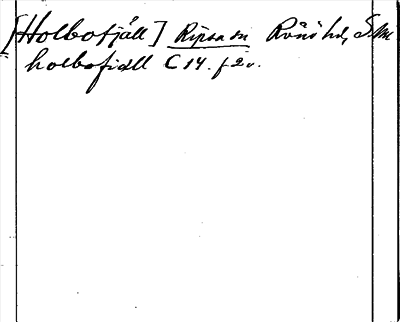 [Holbofjäll] Ripsa sn Rönö hd, Sdm
holbofiäll C 14. f 2 v.